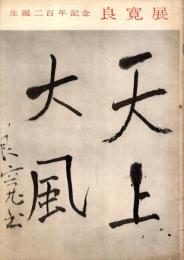 生誕二百年記念 良寛展
天上
大風
良寛書